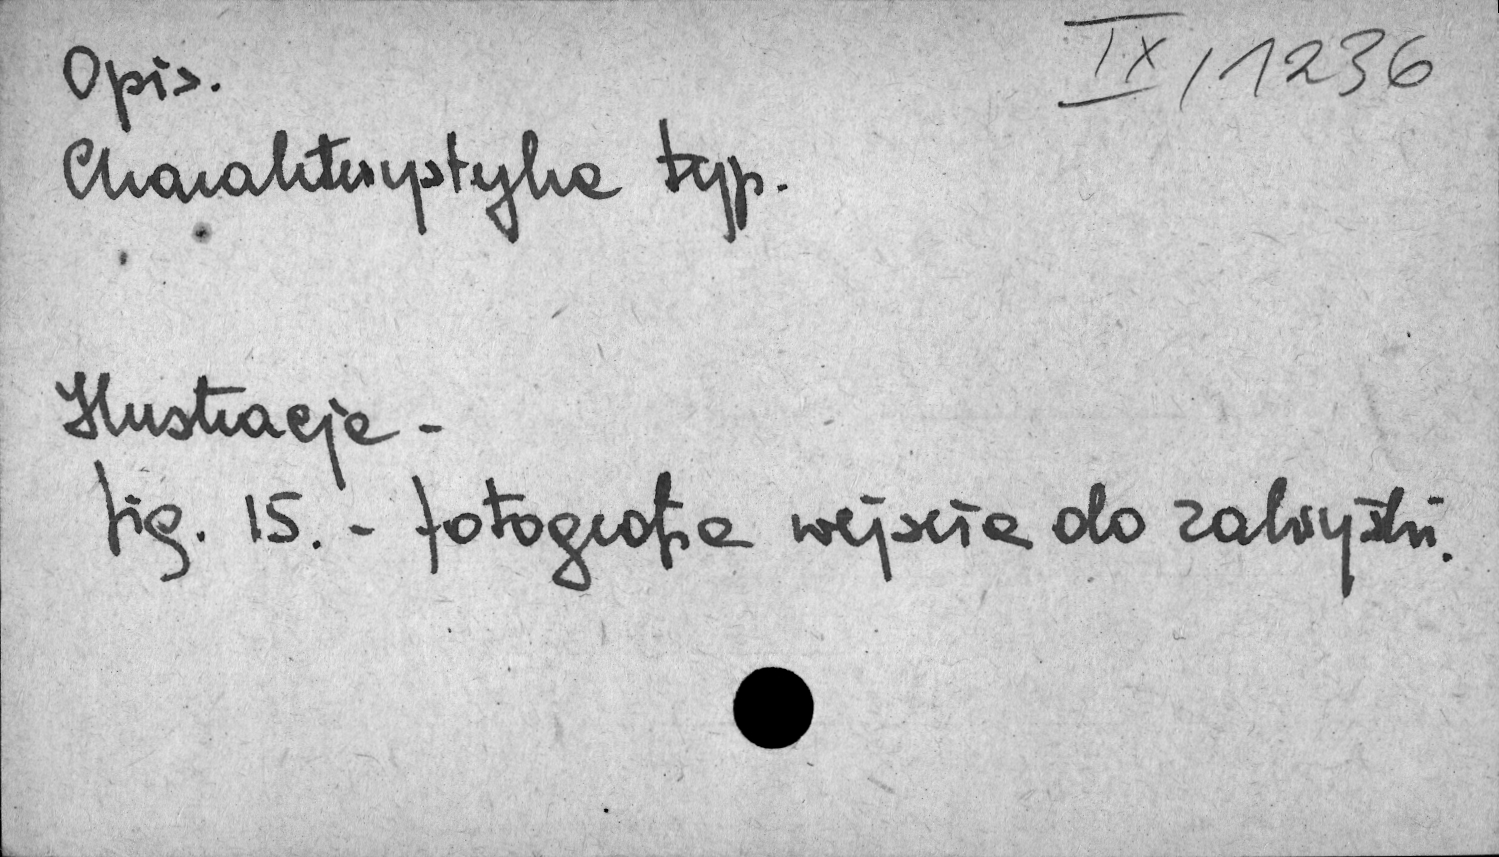 IX/1236
Opis.
Charakterystyka typ.
Ilustracje -
fig. 15. - fotografia wejscia do zakrystii.